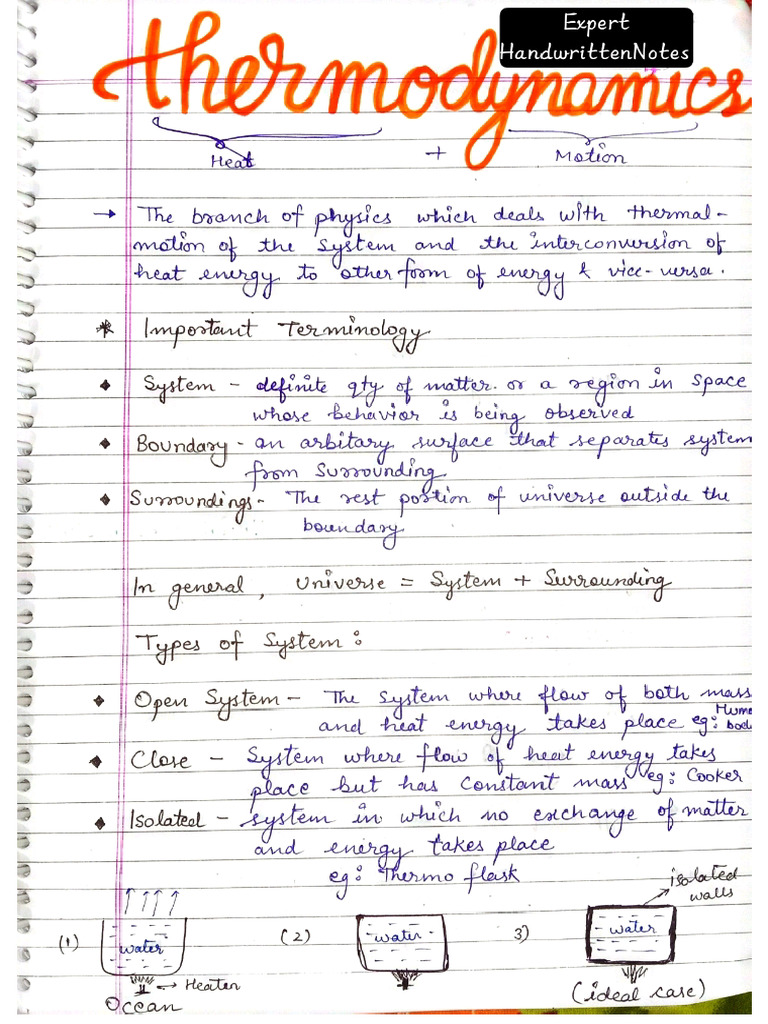 Expert
HandwrittenNotes
thermodynamics
Heat + Motion
→ The branch of physics which deals with thermal-
motion of the system and the interconversion of
heat energy to other form of energy & vice-versa.
* Important Terminology
◆ System - definite qty of matter. or a region in space
whose behavior is being observed
◆ Boundary - an arbitary surface that separates system
from surrounding
◆ Surroundings - The rest portion of universe outside the
boundary
In general, Universe = System + Surrounding
Types of System:
◆ Open System - The system where flow of both mass
and heat energy takes place eg:
◆ Close - System where flow of heat energy takes
place but has constant mass eg: Cooker
◆ Isolated - system in which no exchange of matter
and energy takes place
eg: Thermo flask
isolated
walls
(1) water (2) water 3) water
→ Heater
Ocean
(ideal case)